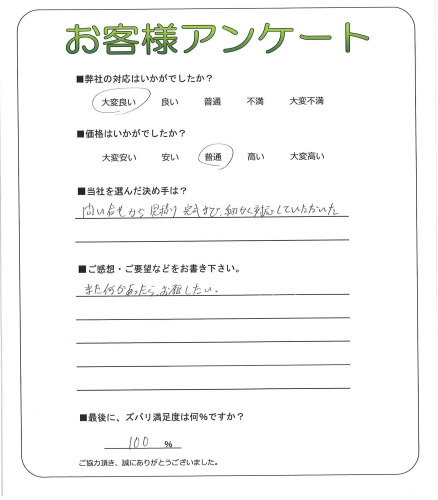 お客様アンケート
■弊社の対応はいかがでしたか？
大変良い 良い 普通 不満 大変不満
■価格はいかがでしたか？
大変安い 安い 普通 高い 大変高い
■当社を選んだ決め手は？
問い合せから見積り 完成まで、細かく対応していただいた
■ご感想・ご要望などをお書き下さい。
また何かあったらお願したい。
■最後に、ズバリ満足度は何％ですか？
100 %
ご協力頂き、誠にありがとうございました。